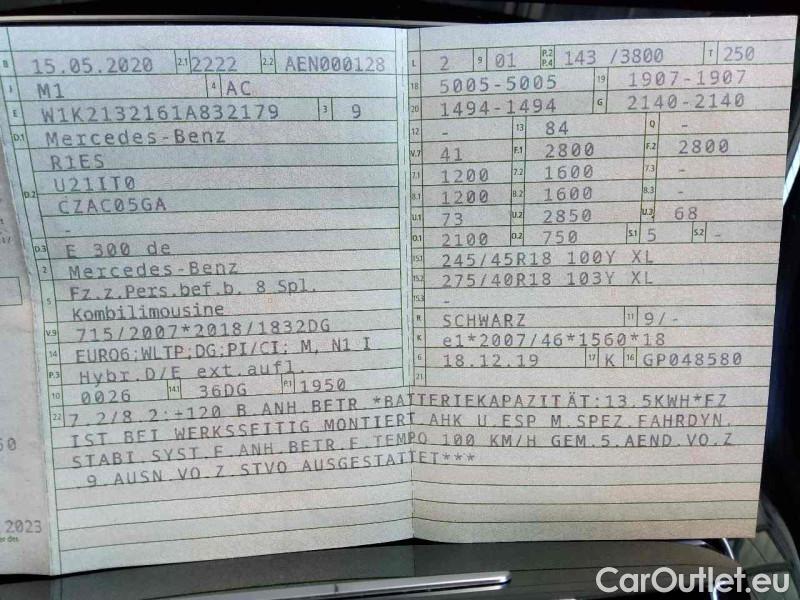 B 15.05.2020 2.1 2222 2.2 AEN000128
J M1 4 AC
E W1K2132161A832179 3 9
D.1 Mercedes-Benz
D.2 R1ES
U21IT0
CZAC05GA
-
D.3 E 300 de
2 Mercedes-Benz
5 Fz.z.Pers.bef.b. 8 Spl.
Kombilimousine
V.9 715/2007*2018/1832DG
14 EURO6;WLTP;DG;PI/CI; M, N1 I
P.3 Hybr.D/E ext.aufl.
10 0026 14.1 36DG P.1 1950
L 2 9 01 P.2 P.4 143 /3800 T 250
18 5005-5005 19 1907-1907
20 1494-1494 G 2140-2140
12 - 13 84 Q -
V.7 41 F.1 2800 F.2 2800
7.1 1200 7.2 1600 7.3 -
8.1 1200 8.2 1600 8.3 -
U.1 73 U.2 2850 U.3 68
O.1 2100 O.2 750 S.1 5 S.2 -
15.1 245/45R18 100Y XL
15.2 275/40R18 103Y XL
15.3 -
R SCHWARZ 11 9/-
K e1*2007/46*1560*18
6 18.12.19 17 K 16 GP048580
21
22 7.2/8.2:+120 B.ANH.BETR *BATTERIEKAPAZITÄT:13.5KWH*FZ
IST BEI WERKSSEITIG MONTIERT AHK U.ESP M.SPEZ.FAHRDYN.
STABI.SYST.F.ANH.BETR.F.TEMPO 100 KM/H GEM.5.AEND.VO.Z
.9.AUSN.VO.Z STVO AUSGESTATTET***
.2023
CarOutlet.eu